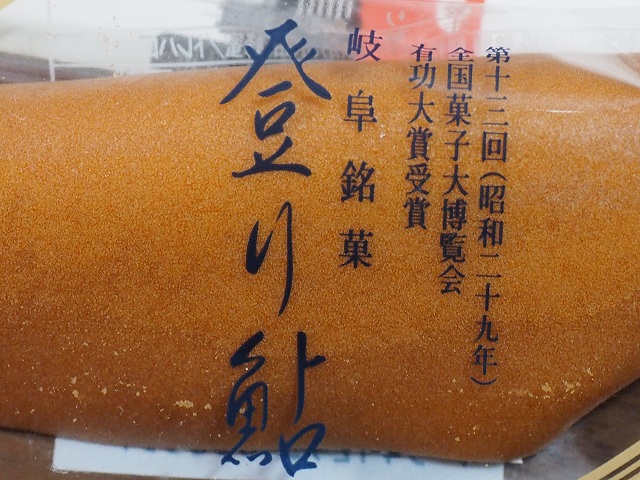 第十三回(昭和二十九年)
全国菓子大博覧会
有功大賞受賞
岐阜銘菓
登り鮎